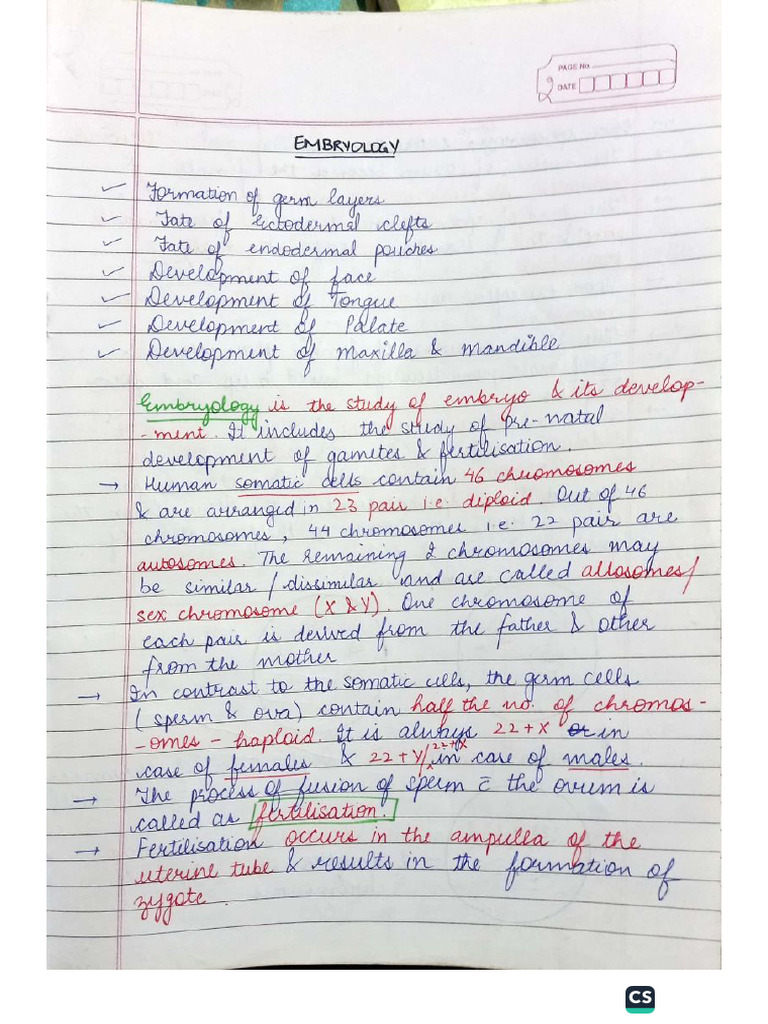 PAGE No.
DATE
EMBRYOLOGY
✓ Formation of germ layers
✓ Fate of Ectodermal clefts
✓ Fate of endodermal pouches
✓ Development of face
✓ Development of Tongue
✓ Development of Palate
✓ Development of maxilla & mandible
Embryology is the study of embryo & its develop-
-ment. It includes the study of Pre-natal
development of gametes & fertilisation.
→ Human somatic cells contain 46 chromosomes
& are arranged in 23 pair i.e. diploid. Out of 46
chromosomes, 44 chromosomes i.e. 22 pair are
autosomes. The remaining 2 chromosomes may
be similar/dissimilar and are called allosomes/
sex chromosome (X & Y). One chromosome of
each pair is derived from the father & other
from the mother
→ In contrast to the somatic cells, the germ cells
(sperm & ova) contain half the no. of chromos-
-omes - haploid. It is always 22+X or in
case of females & 22+Y/22+X in case of males.
→ The process of fusion of sperm c̄ the ovum is
called as fertilisation.
→ Fertilisation occurs in the ampulla of the
uterine tube & results in the formation of
zygote.
CS